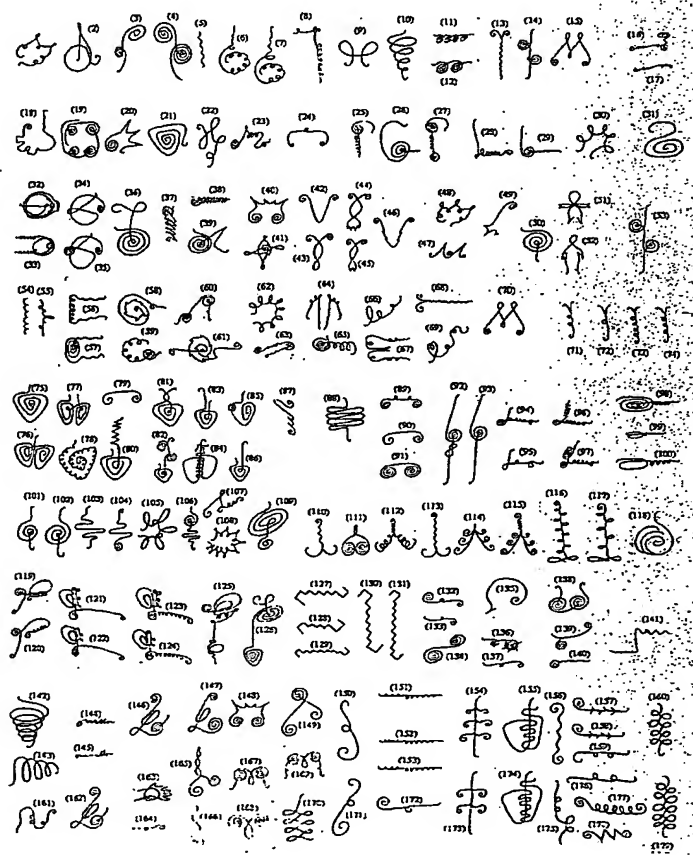 (2) (3) (4) (5) (6) (7) (8) (9) (10) (11) (12) (13) (14) (15) (16) (17)
(18) (19) (20) (21) (22) (23) (24) (25) (26) (27) (28) (29) (30) (31)
(32) (33) (34) (35) (36) (37) (38) (39) (40) (41) (42) (43) (44) (45) (46) (47) (48) (49) (50) (51) (52) (53)
(54) (55) (56) (57) (58) (59) (60) (61) (62) (63) (64) (65) (66) (67) (68) (69) (70) (71) (72) (73) (74)
(75) (76) (77) (78) (79) (80) (81) (82) (83) (84) (85) (86) (87) (88) (89) (90) (91) (92) (93) (94) (95) (96) (97) (98) (99) (100)
(101) (102) (103) (104) (105) (106) (107) (108) (109) (110) (111) (112) (113) (114) (115) (116) (117) (118)
(119) (120) (121) (122) (123) (124) (125) (126) (127) (128) (129) (130) (131) (132) (133) (134) (135) (136) (137) (138) (139) (140) (141)
(142) (143) (144) (145) (146) (147) (148) (149) (150) (151) (152) (153) (154) (155) (156) (157) (158) (159) (160)
(161) (162) (163) (164) (165) (166) (167) (168) (169) (170) (171) (172) (173) (174) (175) (176) (177) (178) (179)